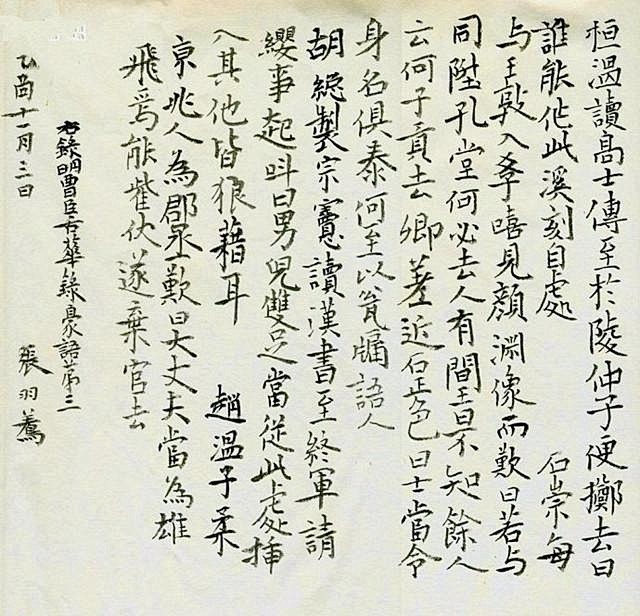 恒溫讀高士傳至於陵仲子便擲去曰
誰能作此溪刻自處　石崇每
与王敦入學嬉見顏淵像而歎曰若与
同陞孔堂何必去人有間王曰不知餘人
云何子貢去卿差近石正色曰士當令
身名俱泰何至以瓮牖語人
胡總製宗憲讀漢書至終軍請
纓事起叫曰男兒雙足當從此處插
入其他皆狼藉耳　趙溫子柔
京兆人為郡丞歎曰大丈夫當為雄
飛焉能雌伏遂棄官去
右錄明曹臣舌華錄豪語第三
乙酉十一月三日　張羽騫